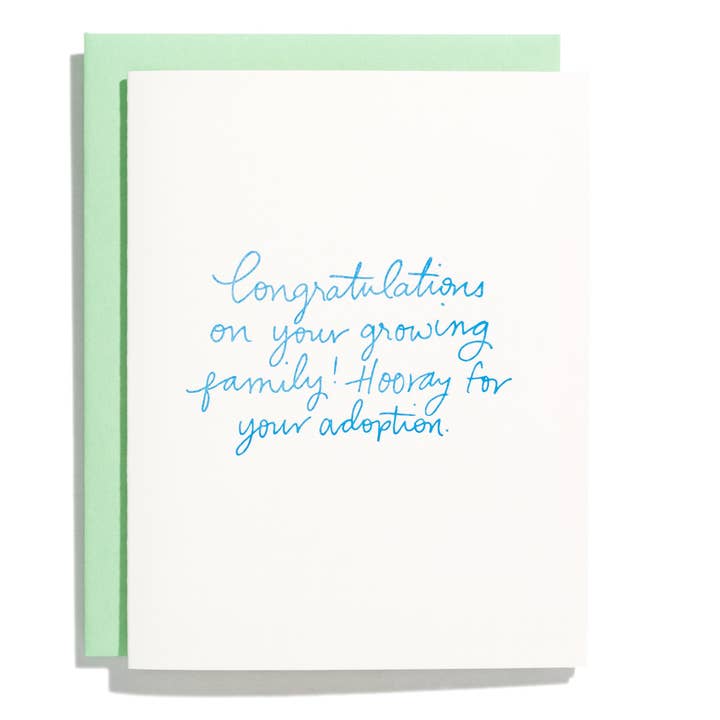 Congratulations
on your growing
family! Hooray for
your adoption.